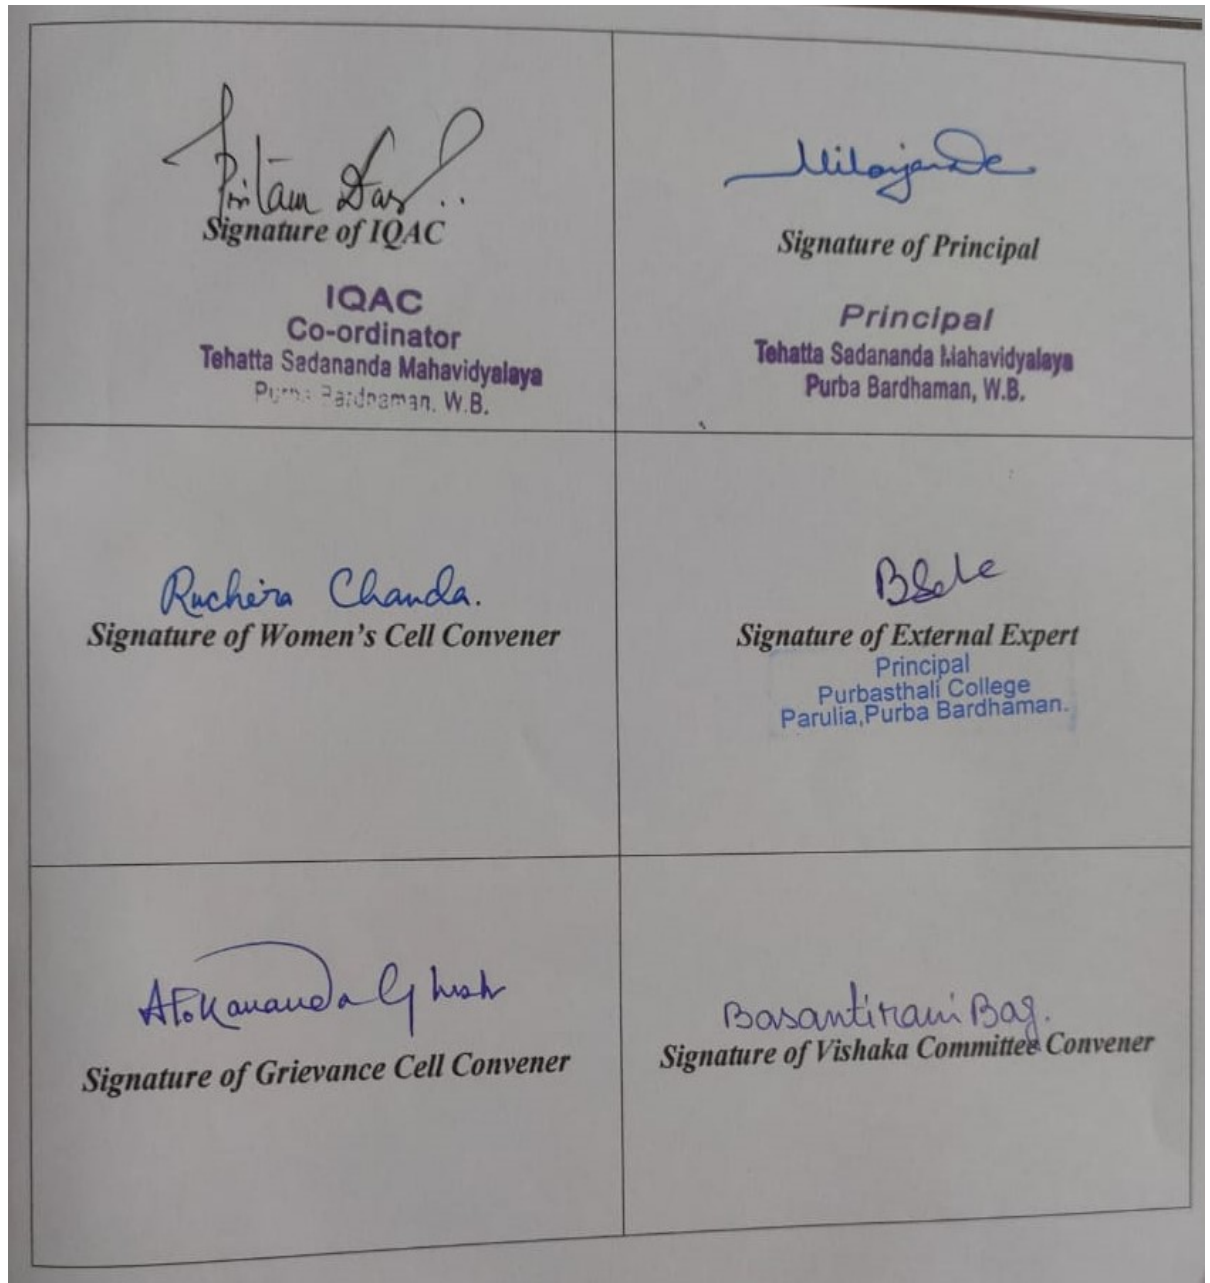 Pritam Das
Signature of IQAC
IQAC
Co-ordinator
Tehatta Sadananda Mahavidyalaya
Purba Bardhaman, W.B.
Signature of Principal
Principal
Tehatta Sadananda Mahavidyalaya
Purba Bardhaman, W.B.
Ruchira Chanda.
Signature of Women's Cell Convener
Signature of External Expert
Principal
Purbasthali College
Parulia,Purba Bardhaman.
Alokananda Ghosh
Signature of Grievance Cell Convener
Basantirani Bag.
Signature of Vishaka Committee Convener